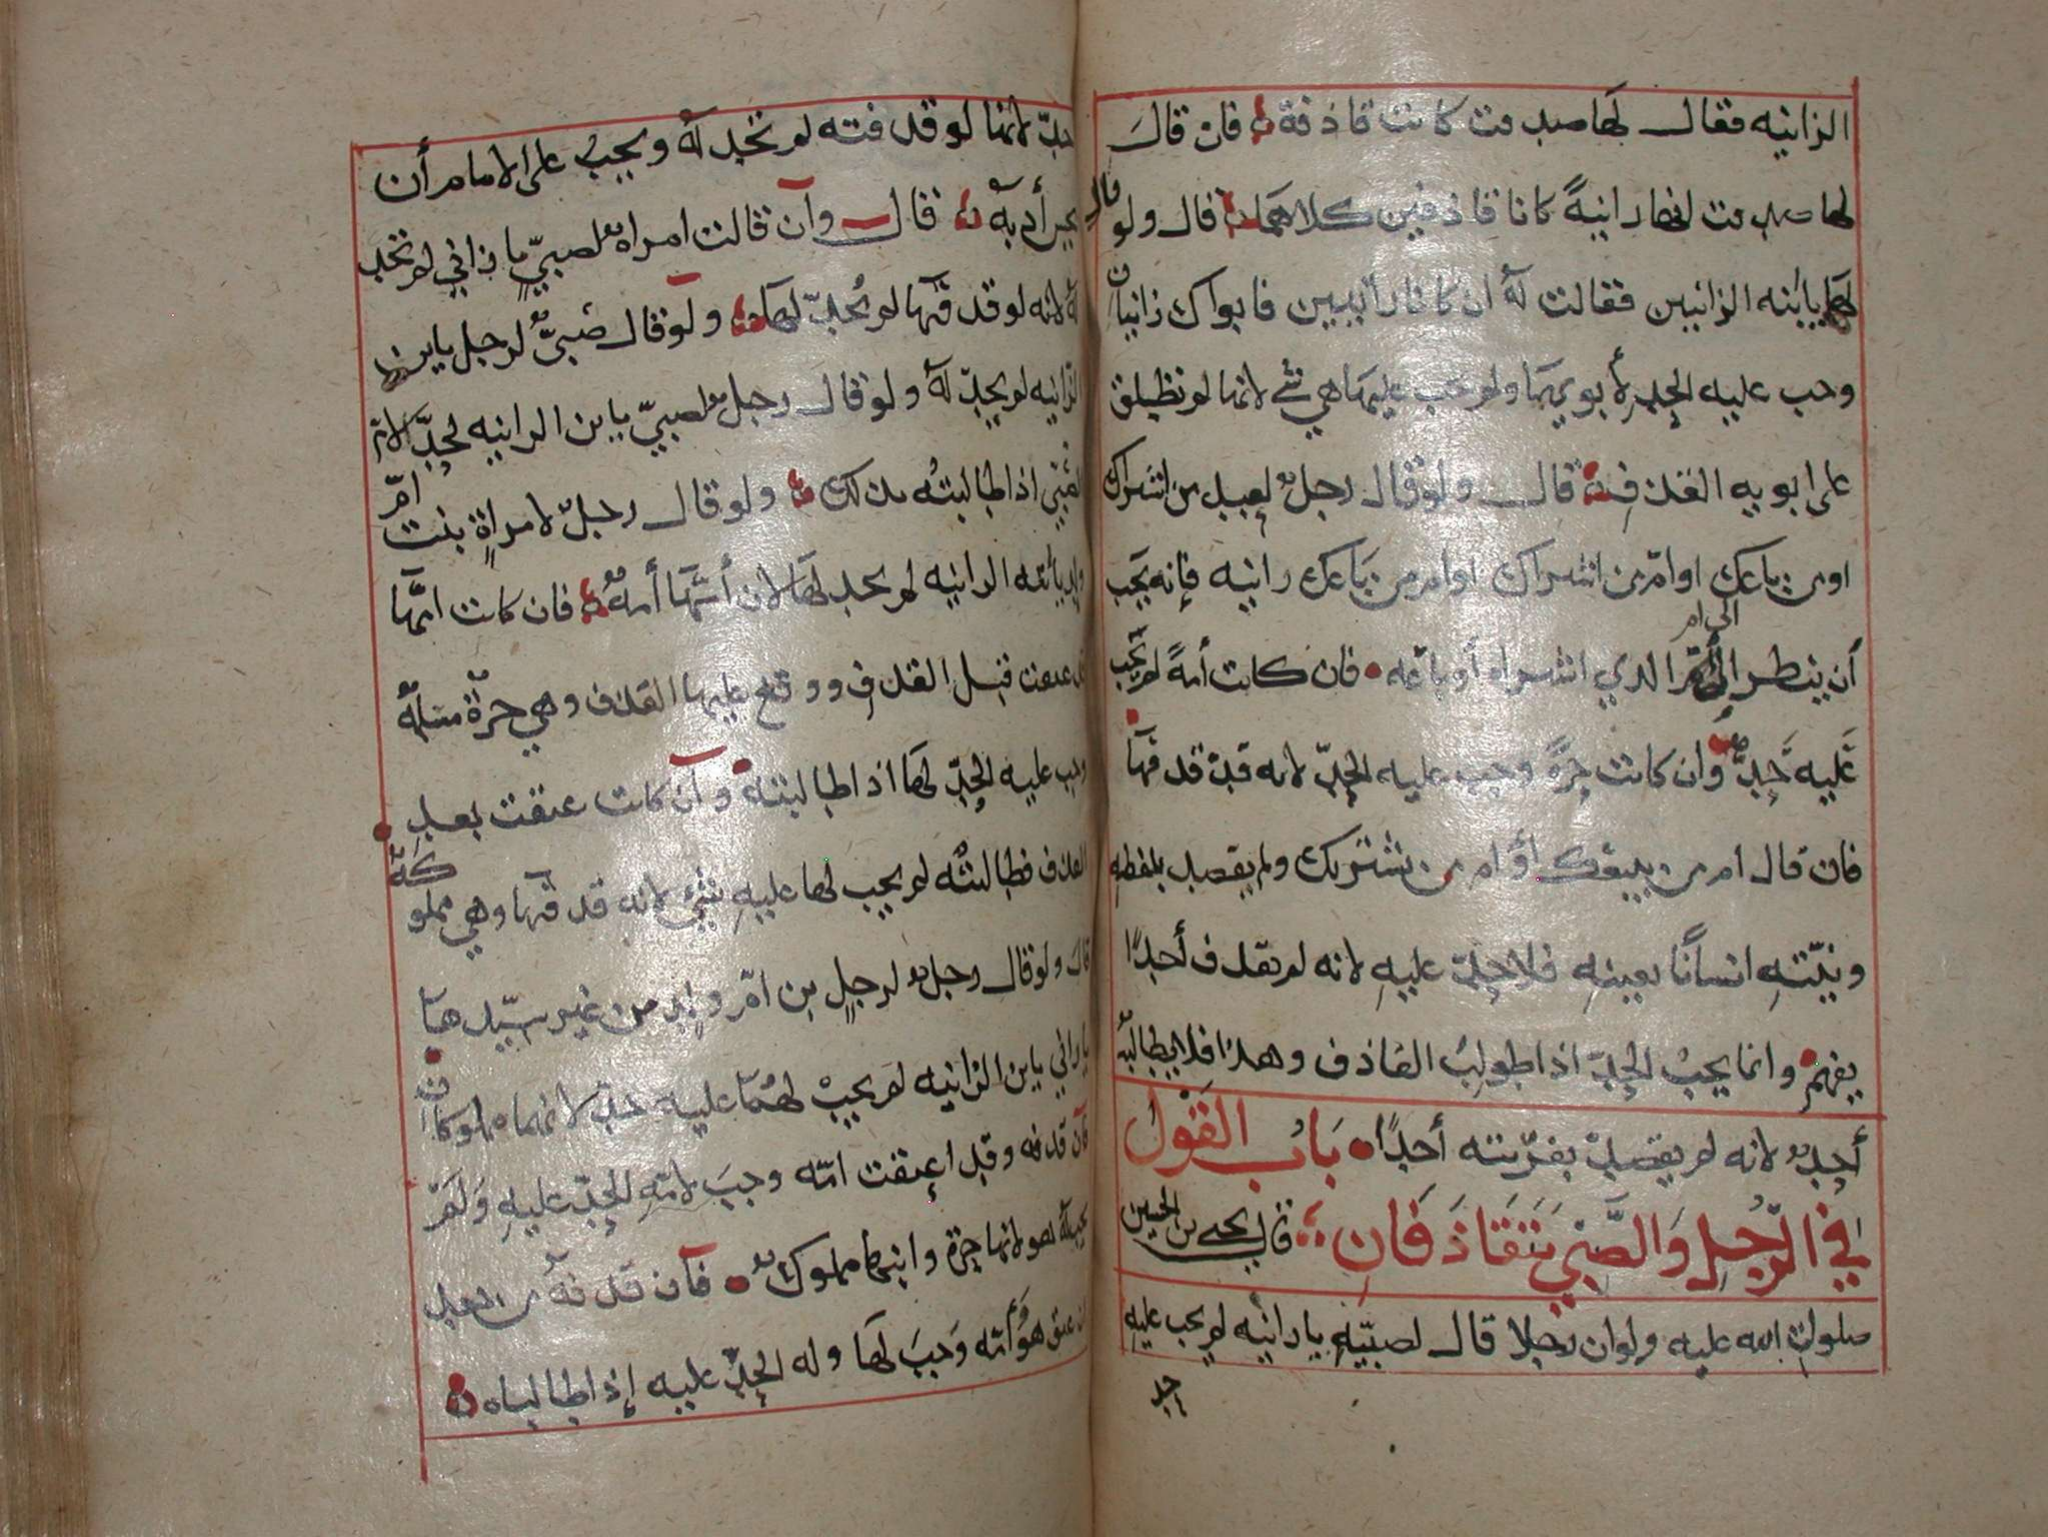 الزانيه فقال لها صدقت كانت قاذفة فان قال
لها صدقت انها زانيةً كانا قاذفين كلاهما قال ولو قال
لها يابنه الزانيين فقالت له ان كانا زانيين فابواك زانيان
وجب عليه الحد لأبويها ولم يجب عليها هي شي لانها لم تطلق
على ابويه القذف قال ولو قال رجل لعبد من اشتراك
او من باعك او امّ من اشتراك او ام من باعك زانيه فإنه يجب
أن ينظر الى ام الذي اشتراه أو باعه فان كانت أمةً لم يجب
عَليه حدٌّ وان كانت حرةً وجب عليه الحدّ لانه قد قذفها
فان قال ام من يبيعك أو ام من يشتريك ولم يقصد بلفظه
ونيّتهِ انسانًا بعينهِ فلا حدّ عليهِ لانه لم يقذف أحدًا
يفهم وانما يجبُ الحدّ اذا طولبُ القاذف وهذا فلا يطالبه
أحدٌ لانه لم يقصد بفريته أحدًا بَابُ القَول
في الرّجُلِ وَالصَّبيِ يَتَقَاذَفَانِ قال يحيى بن الحسين
صلوات الله عليه ولو ان رجلا قال لصبيّهِ يا زانيه لم يجب عليه
حد
حدّ لانها لو قذفته لم تحد له ويجبُ على الامام أن
يحسن أدبه قال وآن قالت امراه لصبيٍّ يا زاني لم تحد
له لانه لو قذفها لم يُحدّ لها ولو قال صبيٌّ لرجل يابن
الزانيه لم يحدّ له ولو قال رجل لصبيّ يابن الزانيه حدّ لامّ
الصبي اذا طالبته بذلك ولو قال رجلٌ لامراةٍ بنت امّ
ولد يابنه الزانيه لم يحد لها لان أمّها أمه فان كانت امّها
قد عتقت قبل القذف ووقع عليها القذف وهي حرّة مسلمه
وجب عليه الحدّ لها اذا طالبته وآن كانت عتقت بعد
القذف فطالبته لم يجب لها عليهِ شيء لانه قذفها وهي مملوكه
قال ولو قال رجل لرجلٍ بن امّ ولدٍ من غير سيّدها
يا زاني يابن الزانيه لم يجبْ لهُما عليه حدّ لانهما مملوكان
فان قذفه وقد اعتقت امّه وجبَ لامّهِ الحدّ عليهِ وَلَم
يجب له هو لانها حرة وابنها مملوك فآن قذفه من بعد
ان عتق هُوَ وأمّه وَجبَ لها وله الحدّ عليه إذا طالباه